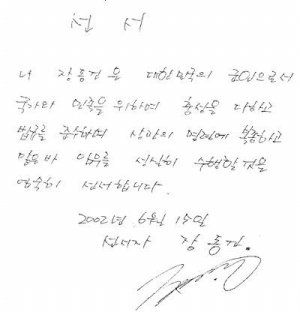 선 서
나 장동건 은 대한민국의 군인으로서
국가와 민족을 위하여 충성을 다하고
법규를 준수하며 상관의 명령에 복종하고
맡은 바 임무를 성실히 수행할 것을
엄숙히 선서합니다.
2002년 6월 15일
선서자 장 동 건.